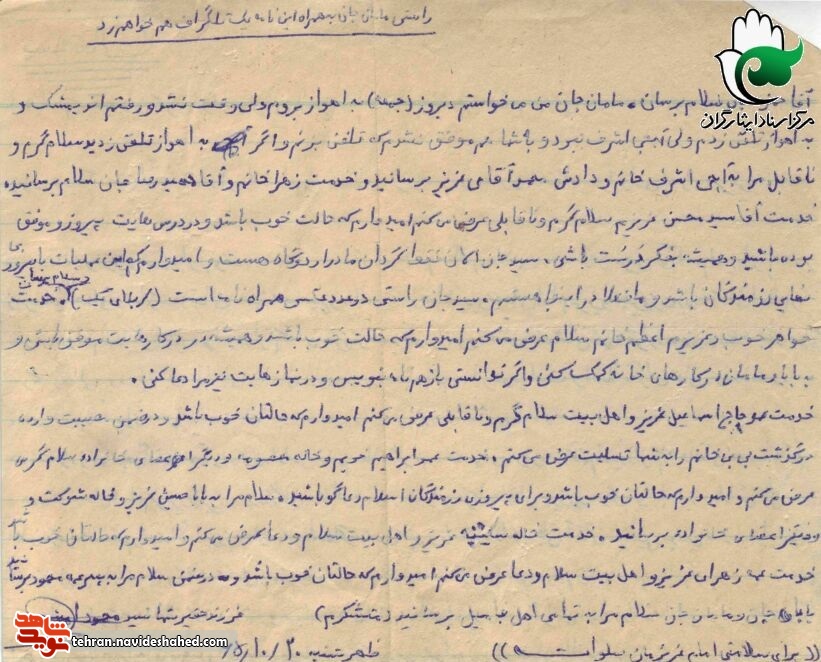 راستی مامان جان به همراه این نامه یک تلگراف هم خواهم زد
مرکز اسناد ایثارگران
آقا جان سلام برسان، مامان جان من می خواستم دیروز (جمعه) به اهواز بروم ولی وقت نشد و رفتم اندیمشک و
به اهواز تلفن زدم ولی آبجی اشرف نبود و با شما هم موفق نشدم که تلفن بزنم و اگر به اهواز تلفن زدید سلام گرم و
ناقابل مرا به آبجی اشرف خانم و داداش محمد آقای عزیز برسانید و خدمت زهرا خانم و آقا حمیدرضا جان سلام برسانید
خدمت آقا سید محسن عزیزم سلام گرم و ناقابلی عرض می کنم امیدوارم که حالت خوب باشد و در درس هایت پیروز و موفق
بوده باشید و همیشه بفکر درست باشی، سید جان الان فقط گردان ما در اردوگاه هست و امیدوارم که این عملیات با پیروزی
نهایی رزمندگان باشد و ما فعلا در اینجا هستیم، سید جان راستی دو عدد عکس همراه نامه است (کربلای یک) خدمت
و سلام برسان
خواهر خوب و عزیزم اعظم خانم سلام عرض می کنم امیدوارم که حالت خوب باشد و همیشه در کارهایت موفق باشی و
به بابا و مامان در کارهای خانه کمک کنی و اگر توانستی باز هم نامه بنویس و در نمازهایت نیز مرا دعا کنی.
خدمت عمو حاج اسماعیل عزیز و اهل بیت سلام گرم و ناقابلی عرض می کنم امیدوارم که حالتان خوب باشد و در ضمن مصیبت وارده
درگذشت بی بی خانم را به شما تسلیت عرض می کنم، خدمت عمو ابراهیم خوبم و خاله معصومه و دیگر اعضای خانواده سلام گرمی
عرض می کنم و امیدوارم که حالتان خوب باشد و برای پیروزی رزمندگان اسلام دعاگو باشید، سلام مرا به بابا حسین عزیز و خاله شوکت و
دیگر اعضای خانواده برسانید. خدمت خاله سکینه عزیز و اهل بیت سلام و دعا عرض می کنم و امیدوارم که حالتان خوب باشد
خدمت عمه زهرای عزیز و اهل بیت سلام و دعا عرض می کنم امیدوارم که حالتان خوب باشد و در ضمن سلام مرا به پسر عمه محمود برسانید
بابا جان و مامان جان سلام مرا به تمامی اهل فامیل برسانید (متشکرم) فرزند حقیر شما سید محمود
((برای سلامتی امام عزیزمان صلوات)) ظهر شنبه ۶۵/۱۰/۲۰
نوید شاهد
tehran.navideshahed.com